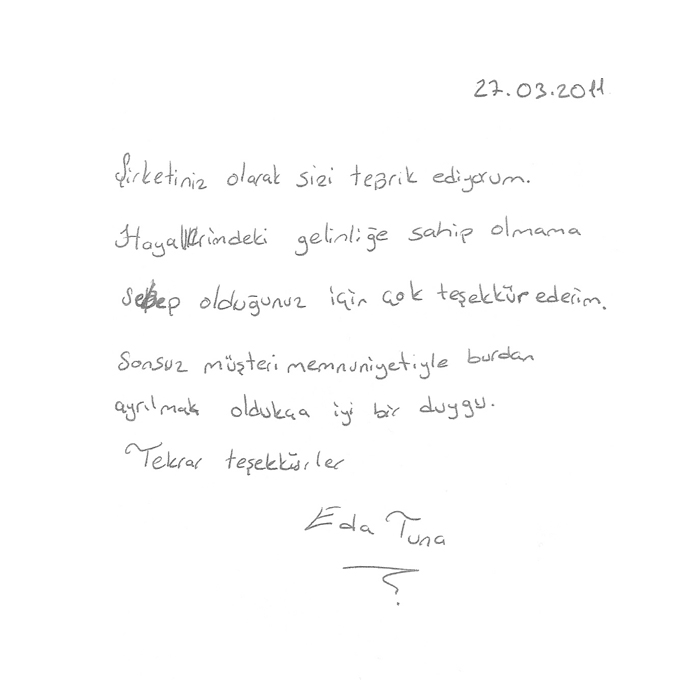 27.03.2011
Şirketiniz olarak sizi tebrik ediyorum.
Hayallerimdeki gelinliğe sahip olmama
sebep olduğunuz için çok teşekkür ederim.
Sonsuz müşteri memnuniyetiyle burdan
ayrılmak oldukça iyi bir duygu.
Tekrar teşekkürler
Eda Tuna